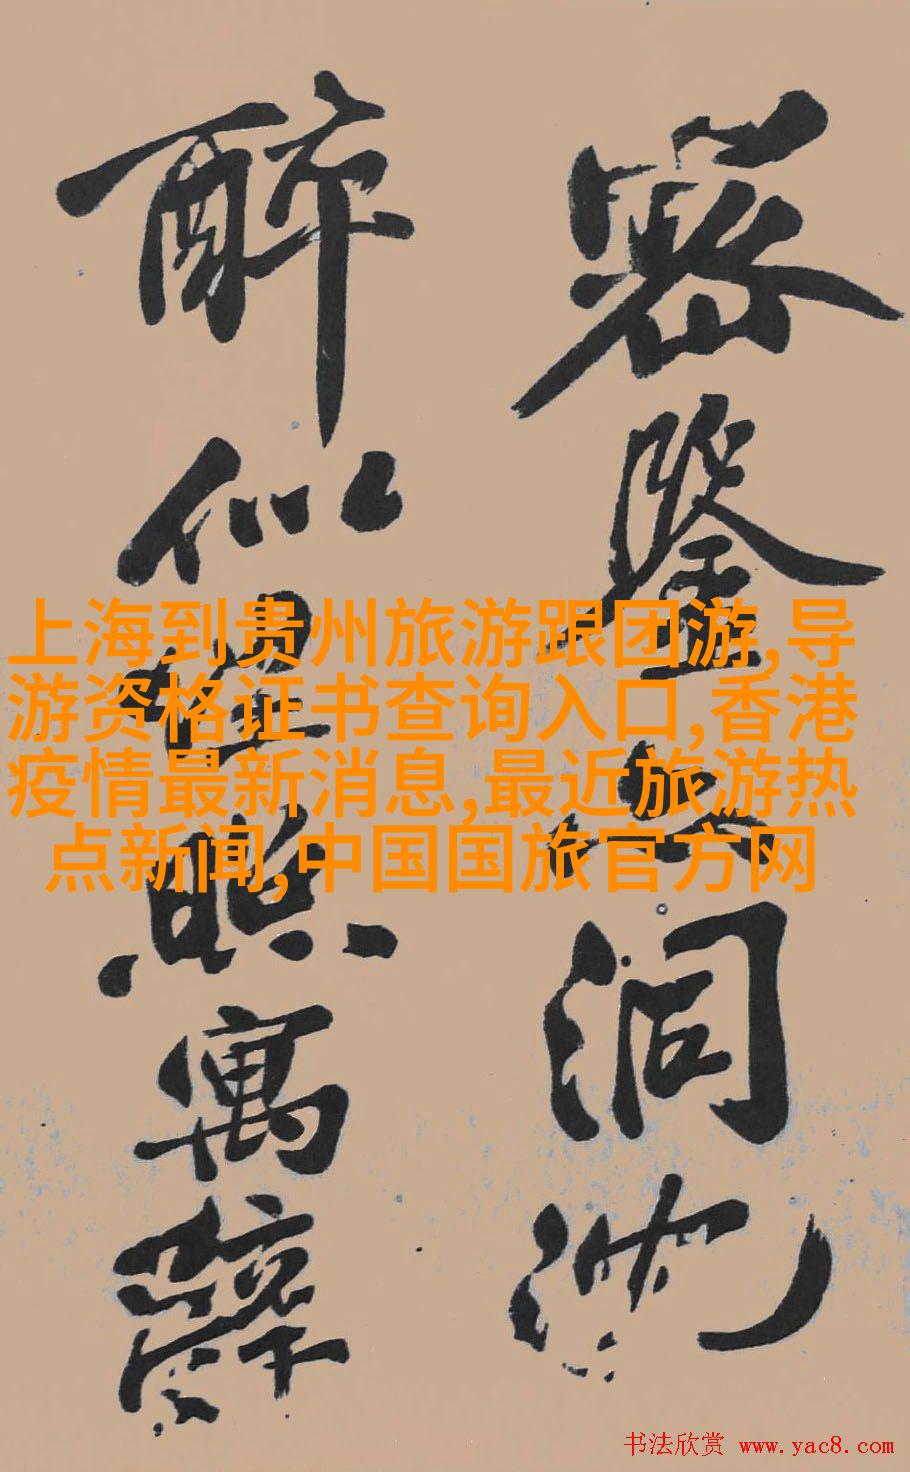 密鉴
洞
醉似
照寓
上海到贵州旅游跟团游,导
游资格证书查询入口,香港
疫情最新消息,最近旅游热
点新闻,中国国旅官方网
书法欣赏 www.yac8.com